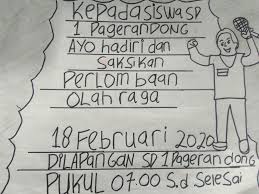 Kepada siswa SD
1 PAGERANDONG
AYO hadiri dan
SaksiKan
PerLombaan
OLah raga
18 Februari 2020
DiLAPANGAN SD 1 Pagerandong
PUKUL 07.00 S.d SeLeSai